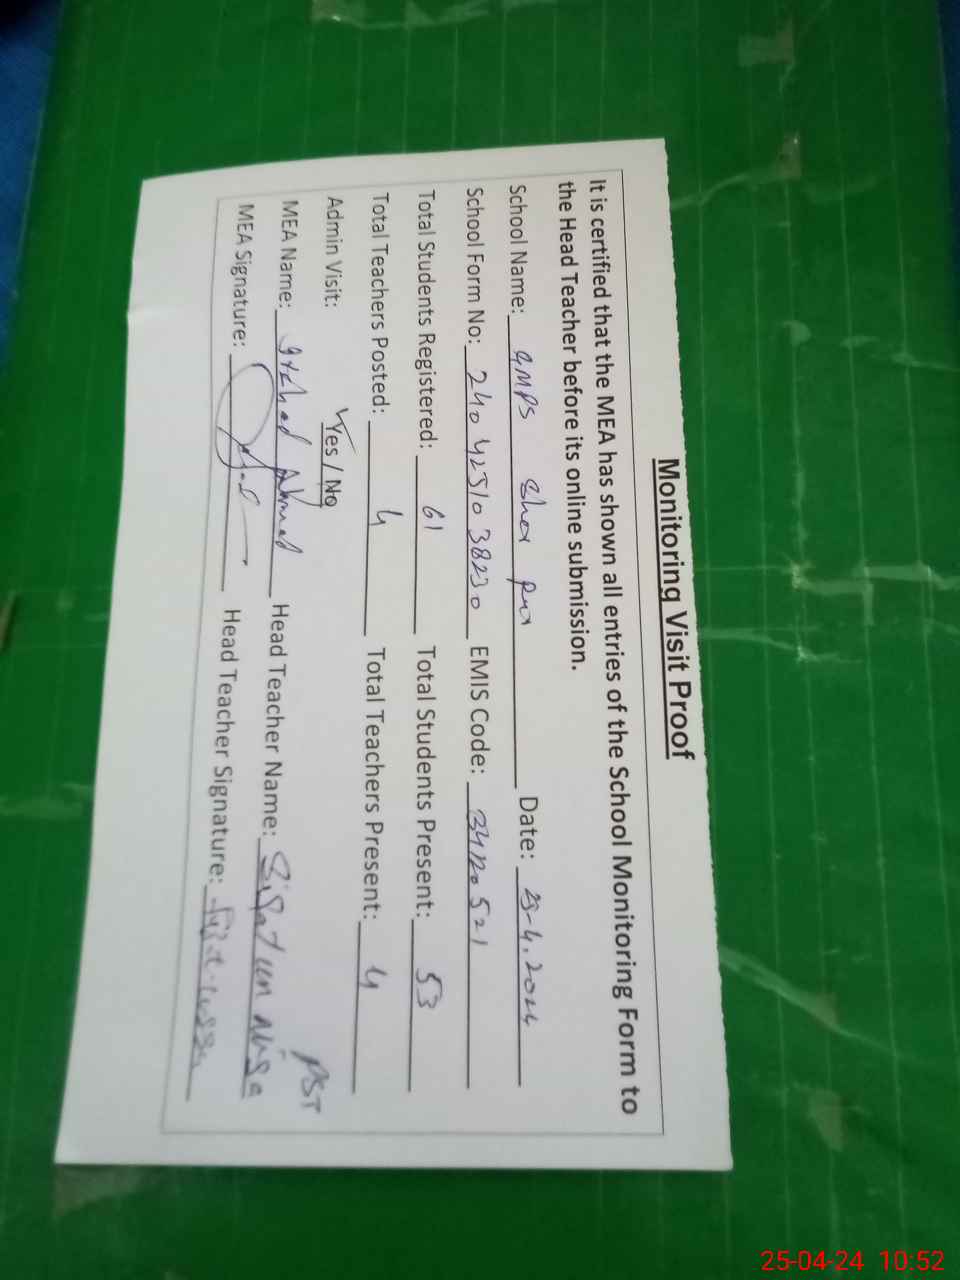 Monitoring Visit Proof
It is certified that the MEA has shown all entries of the School Monitoring Form to
the Head Teacher before its online submission.
School Name: GMPS Sher pur Date: 25-4.2024
School Form No: 240 42510 38230 EMIS Code: 34120521
Total Students Registered: 61 Total Students Present: 53
Total Teachers Posted: 4 Total Teachers Present: 4
Admin Visit: Yes / No PST
MEA Name: Ahmad Head Teacher Name: un Nisa
MEA Signature: Head Teacher Signature:
25-04-24 10:52